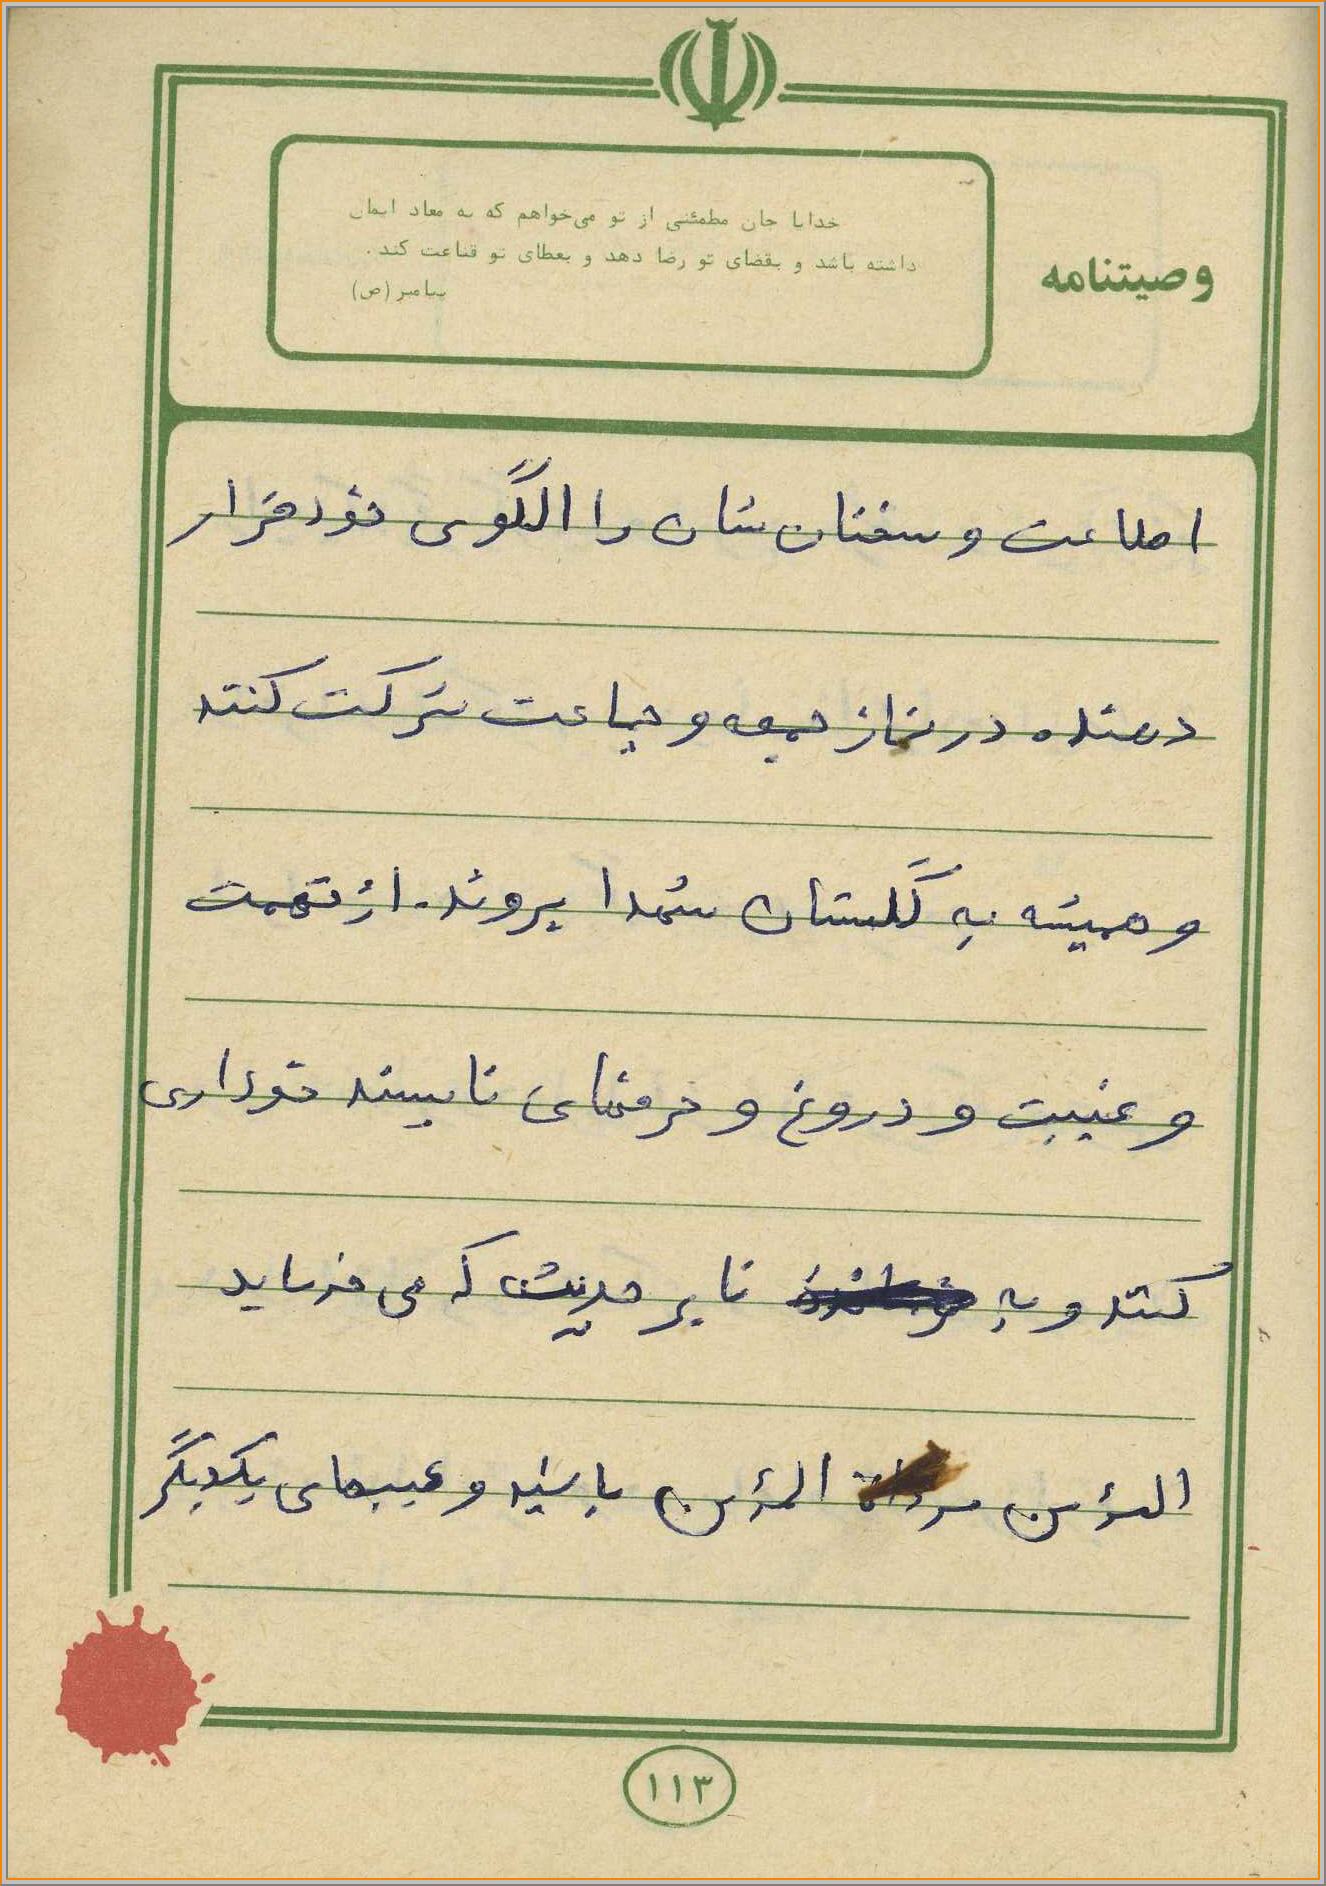 وصیتنامه
خدایا جان مطمئنی از تو می‌خواهم که به معاد ایمان
داشته باشد و بقضای تو رضا دهد و بعطای تو قناعت کند.
پیامبر (ص)
اطاعت و سخنان شان را الگوی خود قرار
دهنده در نماز جمعه و جماعت شرکت کنند
و همیشه به گلستان شهدا بروند. از تهمت
و غیبت و دروغ و حرفهای ناپسند خودداری
کنند و به بنا بر حدیث که می فرماید
المؤمن مرداة المؤمن باشید و عیبهای یکدیگر
۱۱۳